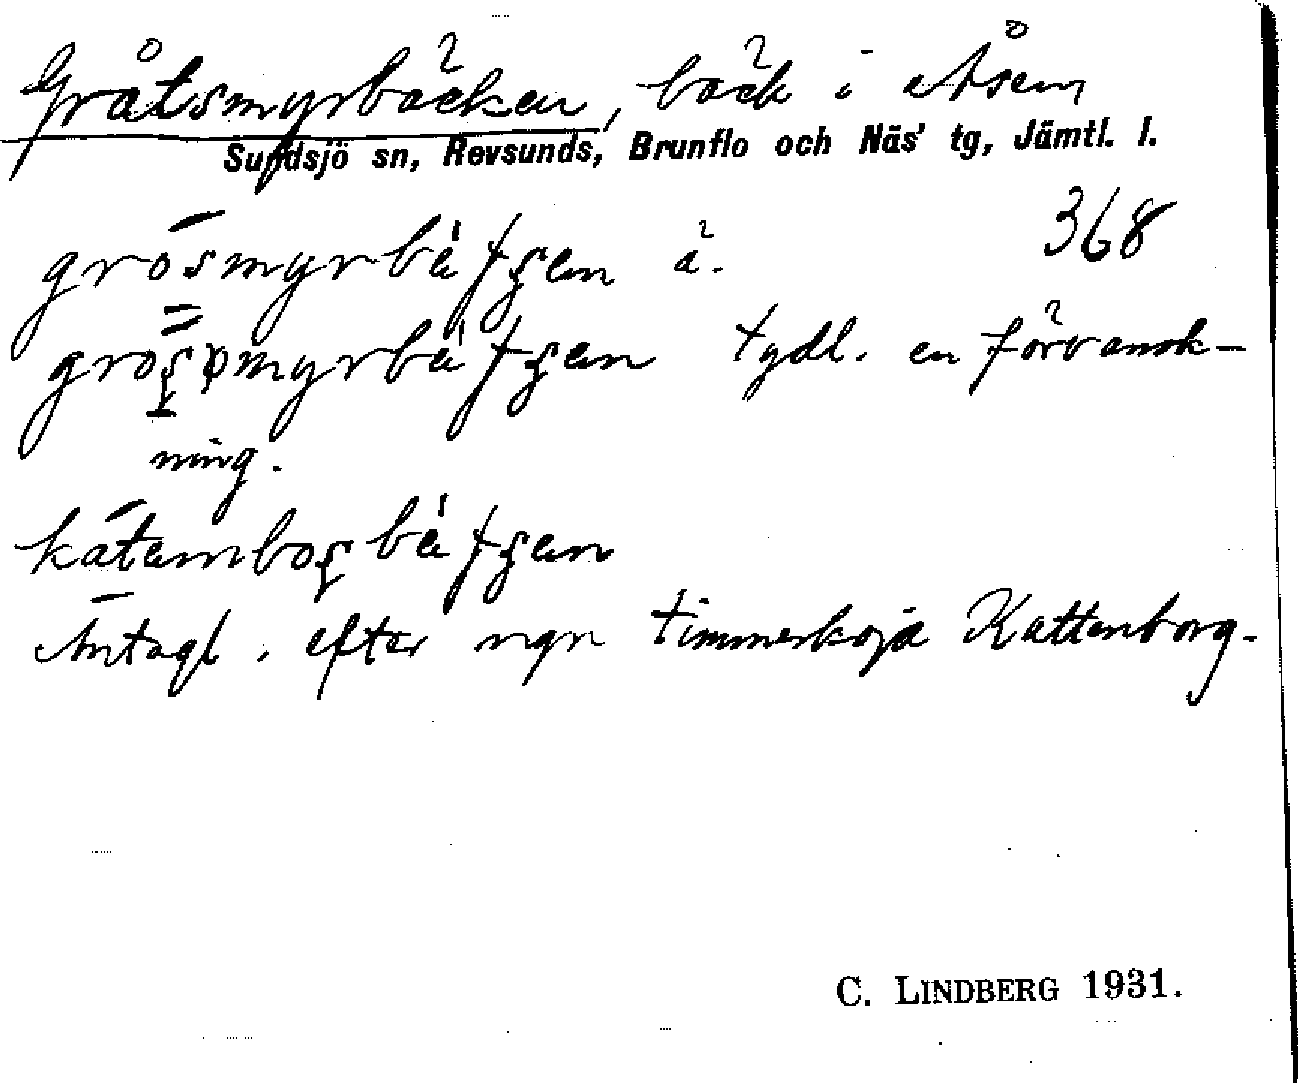 Gråtsmyrbäcken, bäck i Åsen
Sundsjö sn, Revsunds, Brunflo och Näs' tg, Jämtl. l.
368
grōsmyrbätʃen ä.
tydl. en förvansk-
ning.
bätʃen
Antagl. efter ngn timmerkoja Kattenborg.
C. LINDBERG 1931.